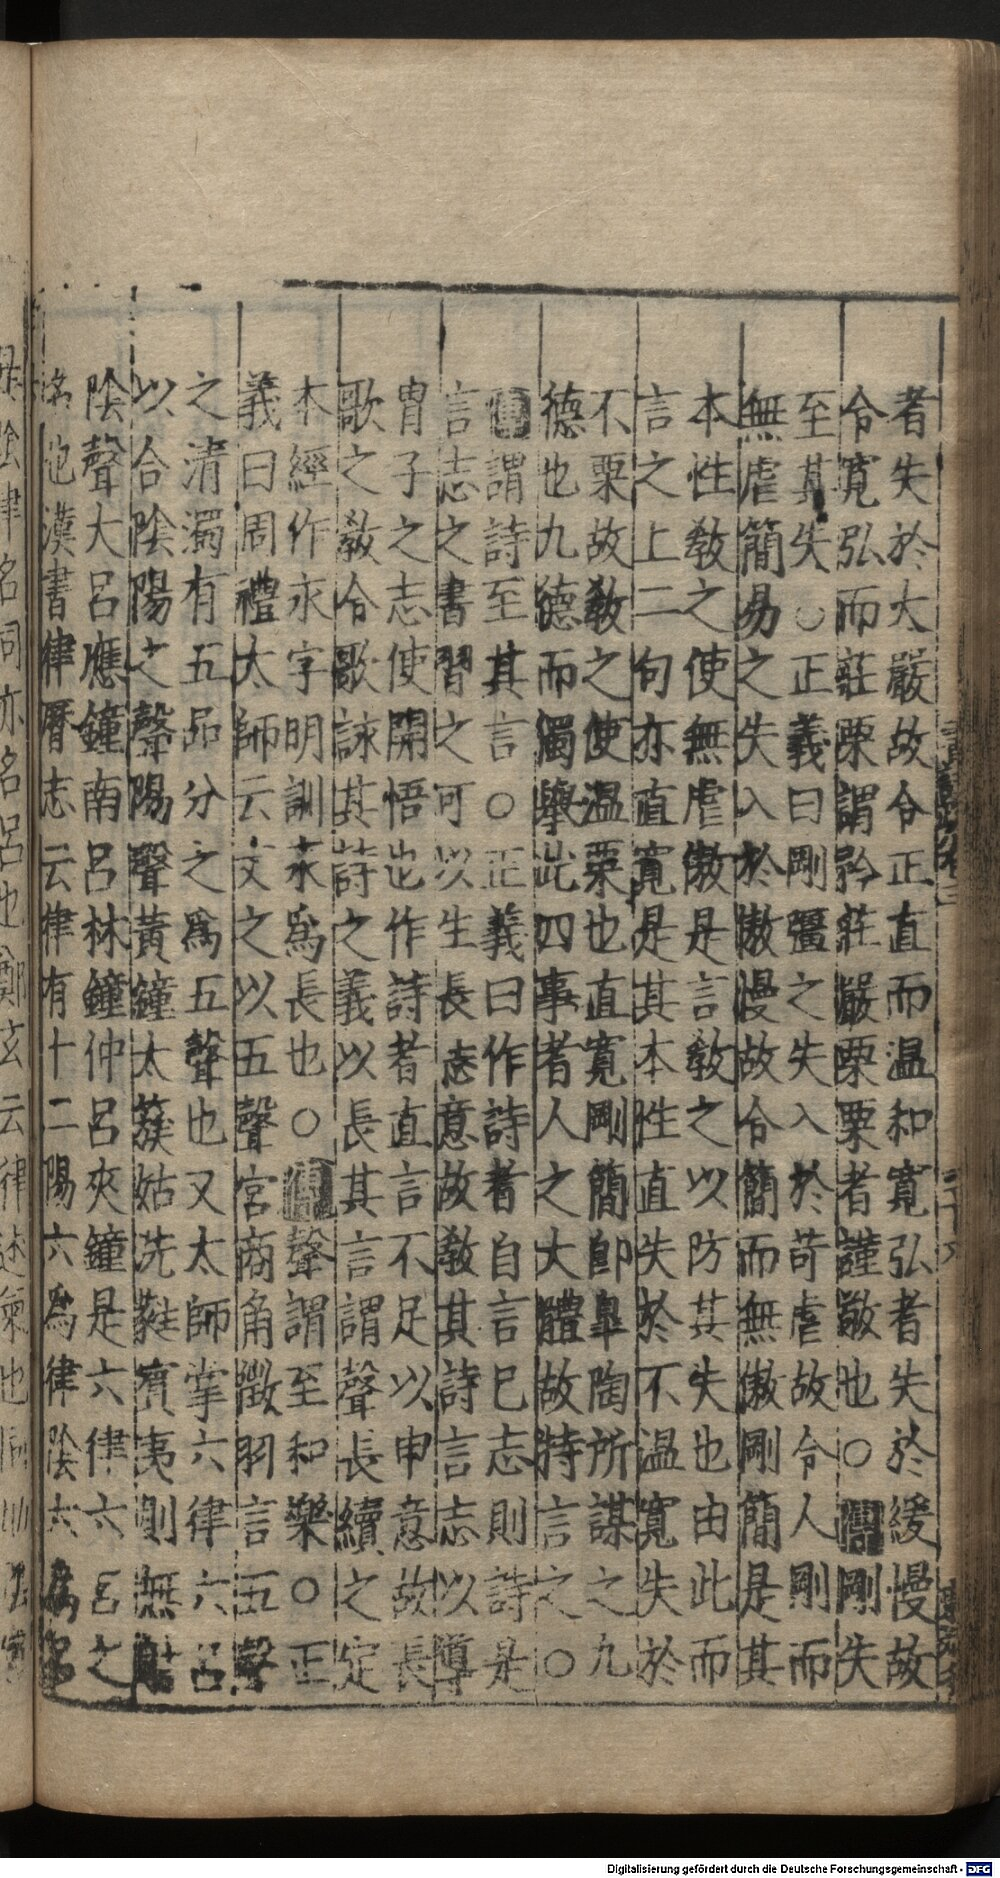 者失於大嚴故令正直而温和寛弘者失於緩慢故
令寛弘而莊栗謂矜莊嚴栗栗者謹敬也○傳剛失
至其失○正義曰剛彊之失入於苛虐故令人剛而
無虐簡易之失入於傲慢故令簡而無傲剛簡是其
本性敎之使無虐傲是言敎之以防其失也由此而
言之上二句亦直寛是其本性直失於不温寛失於
不栗故敎之使温栗也直寛剛簡即臯陶所謀之九
德也九德而獨舉此四事者人之大體故特言之○
傳謂詩至其言○正義曰作詩者自言已志則詩是
言志之書習之可以生長志意故敎其詩言志以導
胄子之志使開悟也作詩者直言不足以申意故長
歌之敎令歌詠其詩之義以長其言謂聲長續之定
本經作永字明訓永爲長也○傳聲謂至和樂○正
義曰周禮太師云文之以五聲宮商角徵羽言五聲
之清濁有五品分之爲五聲也又太師掌六律六呂
以合陰陽之聲陽聲黃鐘太蔟姑洗蕤賓夷則無射
陰聲大呂應鐘南呂林鐘仲呂夾鐘是六律六呂之
名也漢書律曆志云律有十二陽六爲律陰六爲呂
陰律名同亦名呂也鄭玄云律述氣也同助陰宣
Digitalisierung gefördert durch die Deutsche Forschungsgemeinschaft - DFG